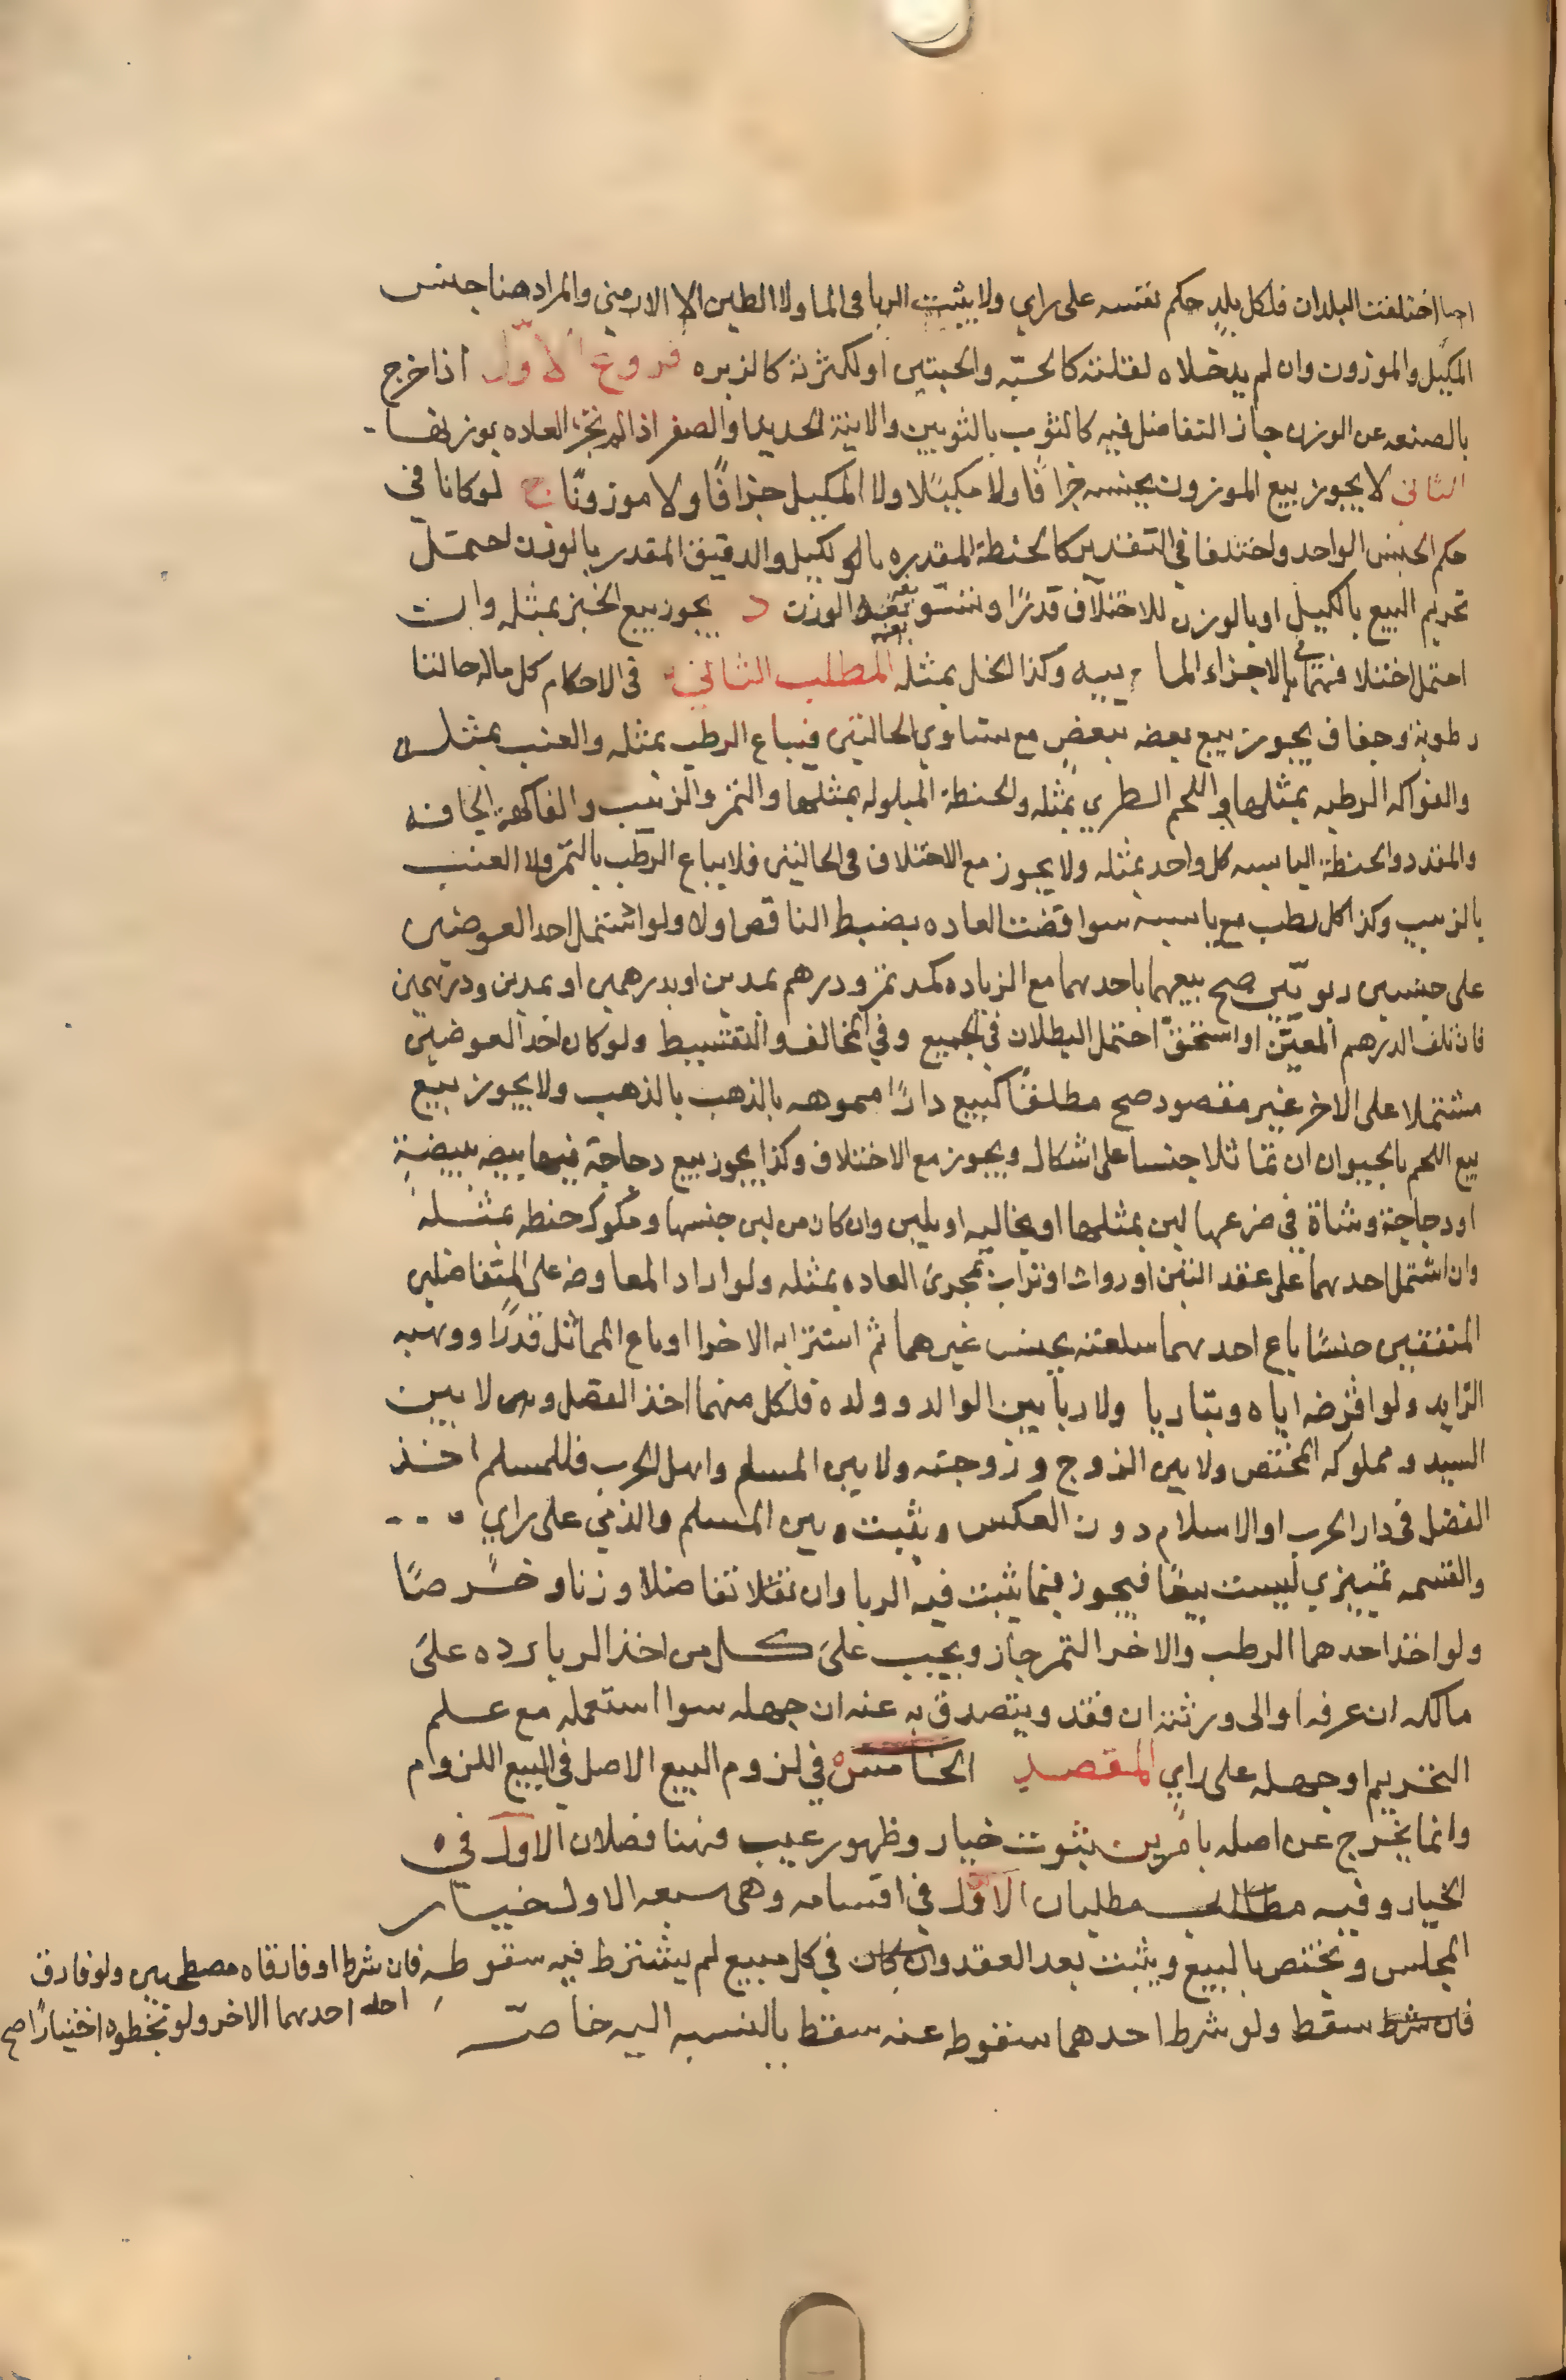 اختلفت البلدان فلكل بلد حكم نفسه على راي ولا يثبت الربا في الما ولا الطين الا الارمني والمراد هنا جنس
المكيل والموزون وان لم يدخلاه لقلته كالحبّه والحبتين او لكثرته كالزبره فروع الاوّل اذا خرج
بالصنعه عن الوزن جاز التفاضل فيه كالثوب بالثوبين والانية الحديد او الصفر اذا لم تجر العاده بوزنها
الثاني لا يجوز بيع الموزون بجنسه جزافًا ولا مكيلا ولا المكيل جزافًا ولا موزونًا ج لو كانا في
حكم الجنس الواحد واختلفا في التقدير كالحنطة المقدره بالكيل والدقيق المقدر بالوزن احتمل
تحريم البيع بالكيل او بالوزن للاختلاف قدرًا وتسويغه الوزن د يجوز بيع الخبز بمثله وان
احتمل اختلافهما في الاجزاء المابيه وكذا الخل بمثله المطلب الثاني في الاحكام كل ماله حالتا
رطوبة وجفاف يجوز بيع بعضه ببعض مع تساوي الحالتين فيباع الرطب بمثله والعنب بمثله
والفواكه الرطبه بمثلها واللحم الطري بمثله والحنطة المبلوله بمثلها والتمر والزبيب والفاكهة الجافه
والمقدد والحنطة اليابسه كل واحد بمثله ولا يجوز مع الاختلاف في الحالتين فلا يباع الرطب بالتمر ولا العنب
بالزبيب وكذا كل رطب مع يابسه سوا قضت العاده بضبط الناقص اولا ولو اشتمل احد العوضين
على جنسين ربويّين صح بيعهما باحدهما مع الزياده كمد تمر ودرهم بمدين او بدرهمين او بمدين ودرهمين
فان تلف الدرهم المعيّن او استحقّ احتمل البطلان في الجميع وفي المخالف والتقسيط ولو كان احد العوضين
مشتملا على الاخر غير مقصود صح مطلقًا كبيع دارًا مموهه بالذهب بالذهب ولا يجوز بيع
بيع اللحم بالحيوان ان تماثلا جنسا على اشكال ويجوز مع الاختلاف وكذا يجوز بيع دجاجة فيها بيضه ببيضةٍ
او دجاجة وشاة في ضرعها لبن بمثلها او بخاليه او بلبن وان كان من لبن جنسها ومكوك حنطه بمثله
وان اشتمل احدهما على عقد التبن او زوان او تراب بمجرى العاده بمثله ولو اراد المعاوضه على المتفاضلين
المتفقين جنسًا باع احدهما سلعته بجنس غيرهما ثم اشترا به الاخر او باع المماثل قدرًا ووهبه
الزايد ولو اقرضه اياه وتباريا ولا ربا بين الوالد وولده فلكل منهما اخذ الفضل ولا بين
السيد ومملوكه المختص ولا بين الزوج وزوجته ولا بين المسلم واهل الحرب فللمسلم اخذ
الفضل في دار الحرب او الاسلام دون العكس ويثبت وبين المسلم والذمي على راي
والقسمه تمييزي ليست بيعًا فيجوز فيما يثبت فيه الربا وان تفاضلا وزنا وخرصًا
ولو اخذ احدهما الرطب والاخر التمر جاز ويجب على كل من اخذ الربا رده على
مالكه ان عرفه او الى ورثته ان فقد ويتصدق به عنه ان جهله سوا استعمله مع علم
التحريم او جهله على راي المقصد الخامس في لزوم البيع الاصل في البيع اللزوم
وانما يخرج عن اصله بامرين ثبوت خيار وظهور عيب فهنا فصلان الاول في
الخيار وفيه مطالب مطلبان الاوّل في اقسامه وهي سبعه الاول خيار
المجلس ويختص بالبيع ويثبت بعد العقد وان كان في كل مبيع لم يشترط فيه سقوطه فان شرط او فارقاه مصطحبين ولو فارق
فان شرط سقط ولو شرط احدهما سقوط عنه سقط بالنسبه اليه خاصّ
احدهما الاخر ولو تخطوه اختيارًا صح